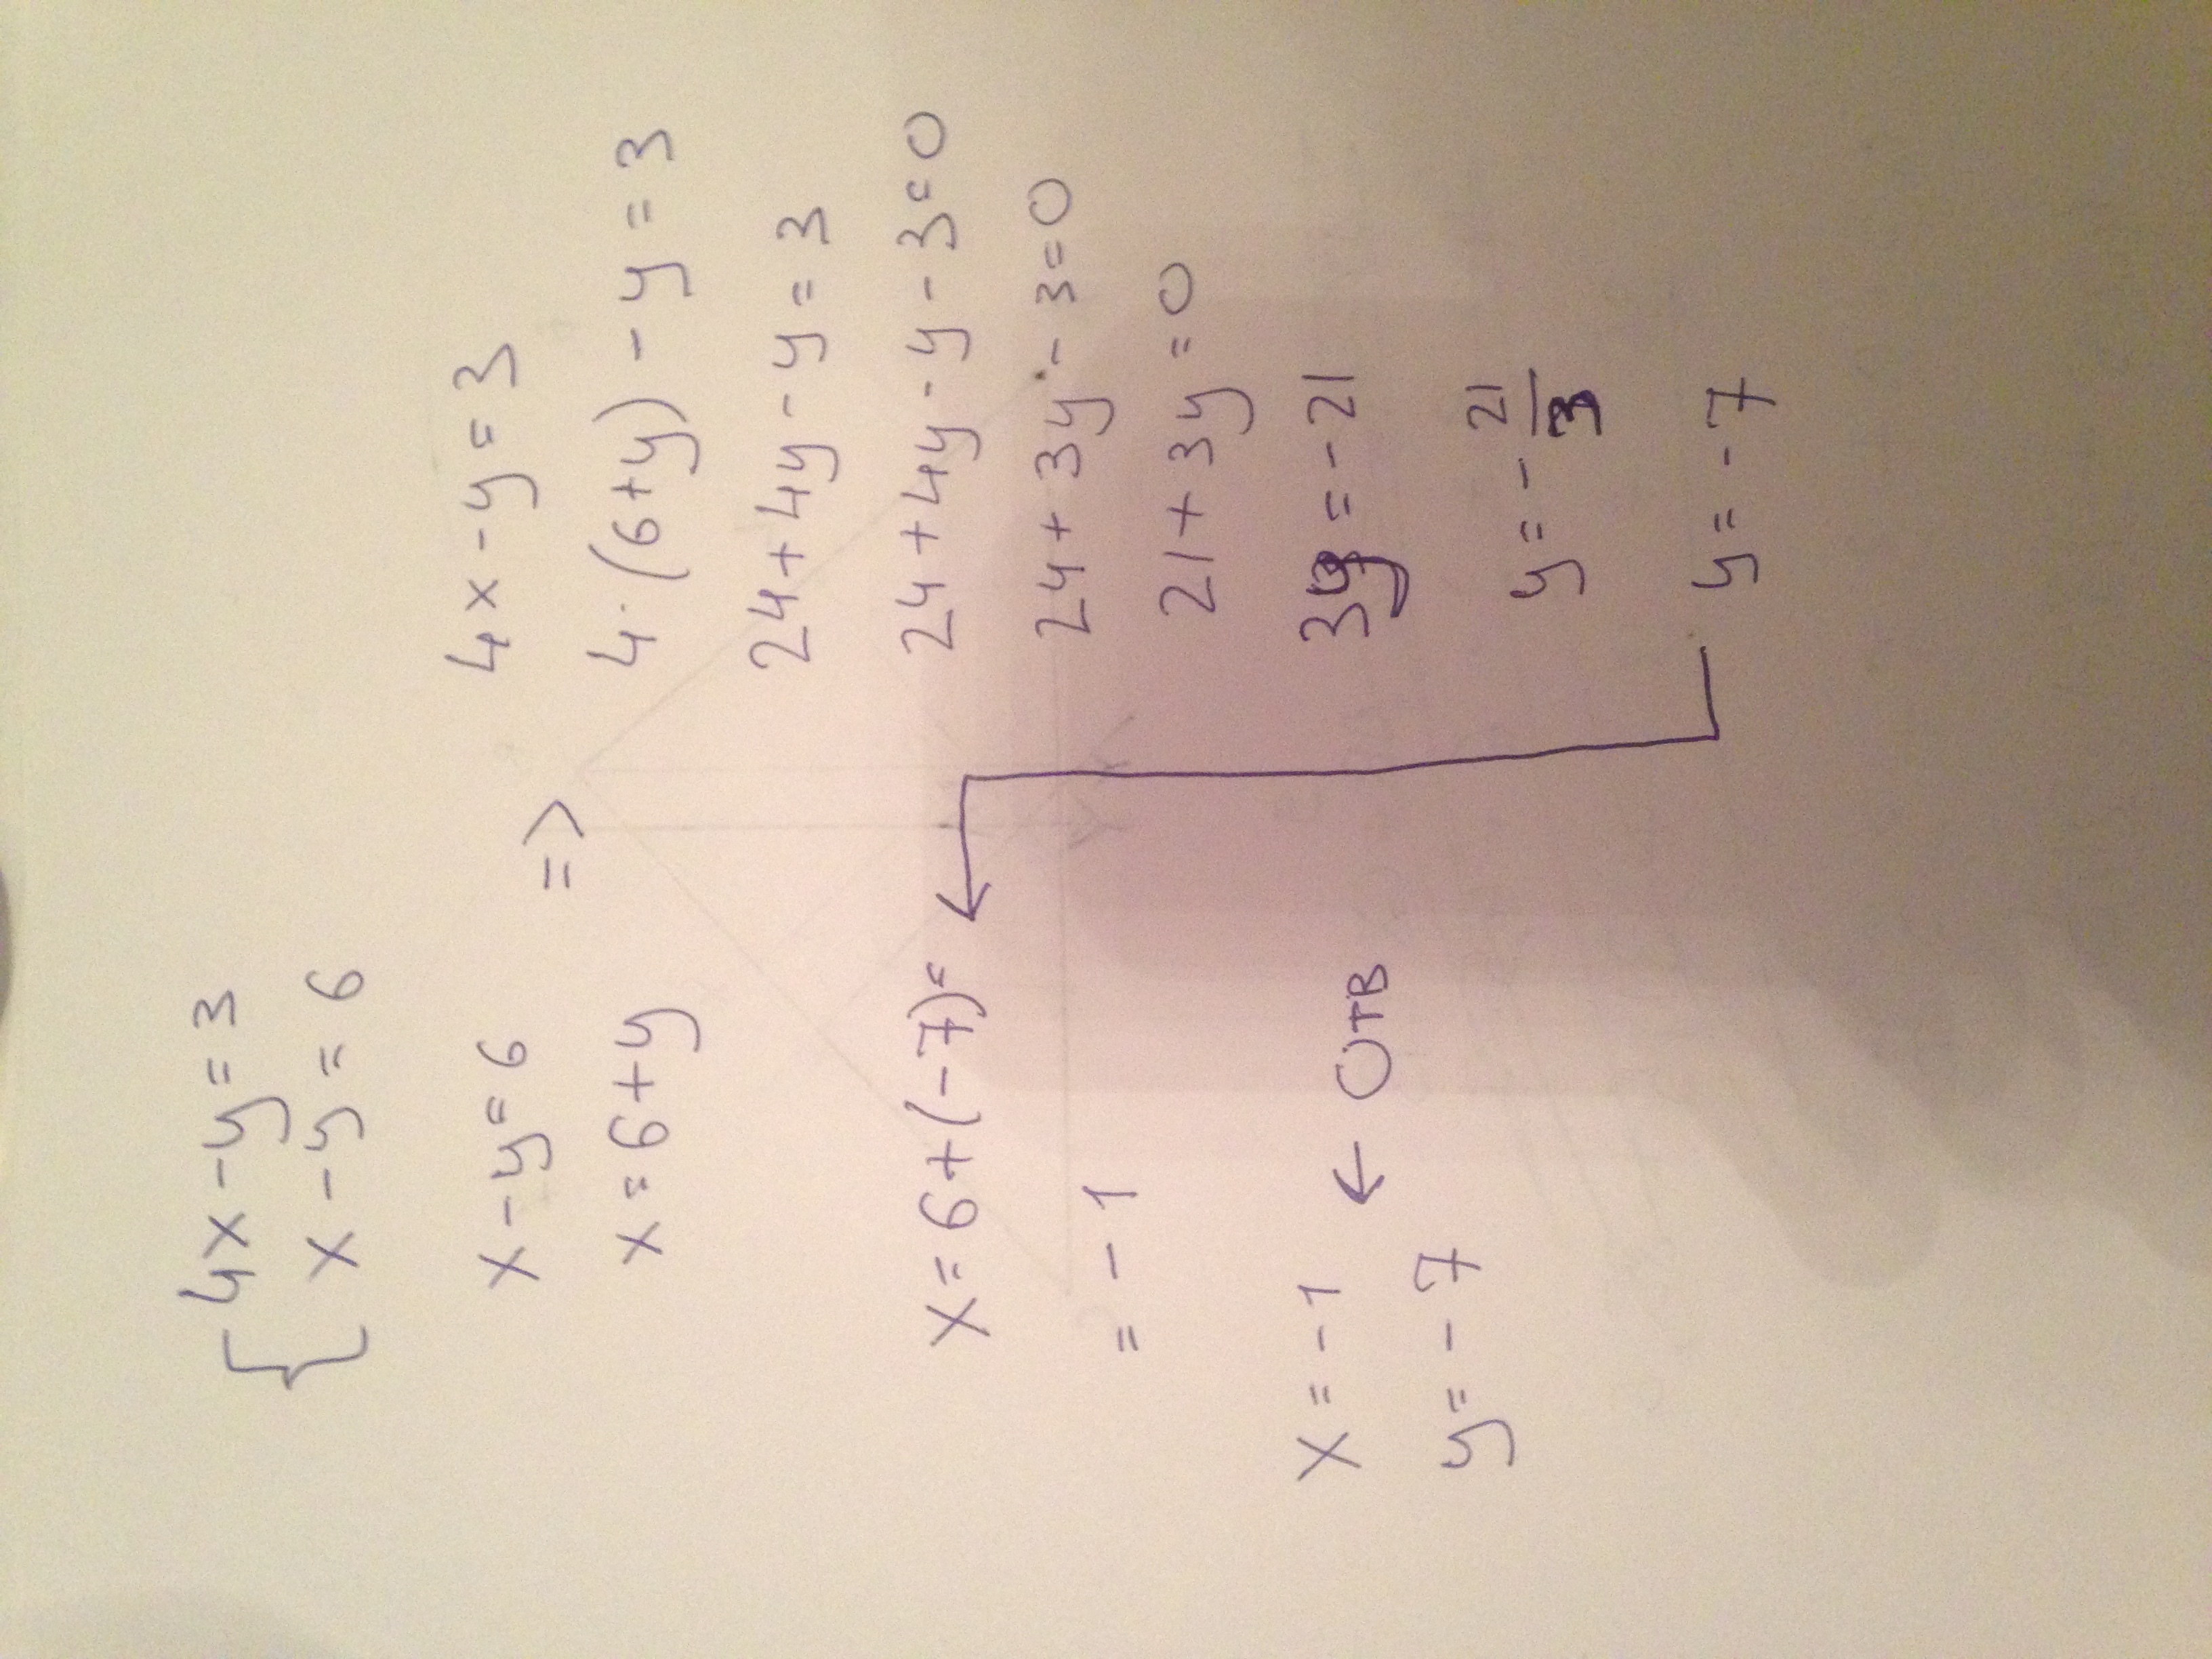 4x-y=3
x-y=6
x-y=6
x=6+y
=>
4x-y=3
4·(6+y)-y=3
24+4y-y=3
24+4y-y-3=0
24+3y-3=0
21+3y=0
3y=-21
y=-21/3
y=-7
x=6+(-7)=
=-1
x=-1 ← Отв
y=-7